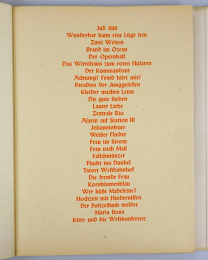 Jud Süß
Wunderbar kann eine Lüge sein
Zwei Welten
Brand im Ozean
Der Opernball
Das Wirtshaus zum roten Husaren
Der Kommandant
Achtung! Feind hört mit!
Paradies der Junggesellen
Kleider machen Leute
Die gute Sieben
Lauter Liebe
Zentrale Rio
Alarm auf Station III
Johannisfeuer
Weißer Flieder
Frau im Strom
Frau nach Maß
Fallschmützer
Flucht ins Dunkel
Tatort Westbahnhof
Die fremde Frau
Kornblumenblau
Wer küßt Madeleine?
Hochzeit mit Hindernissen
Der Polizeifunk meldet
Maria Ilona
Kitty und die Weltkonferenz